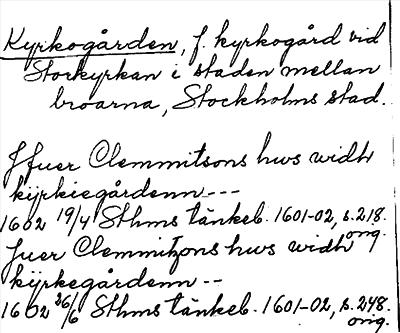 Kyrkogården, f. kyrkogård vid
Storkyrkan i staden mellan
broarna, Stockholms stad.
Jffuer Clemmitsons hws widh
kijrkiegårdenn---
1602 19/4 Sthms tänkeb. 1601-02, s. 218.
orig.
Juer Clemmitzons hws widh
kijrkegårdenn--
1602 26/6 Sthms tänkeb. 1601-02, s. 248.
orig.